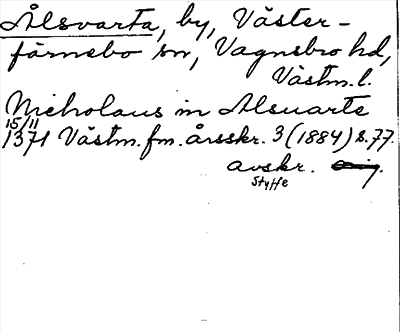 Ålsvarta, by, Väster-
färnebo sn, Vagnsbro hd,
Västm. l.
Nicholaus in Alsuarte
15/11
1371 Västm. fm. årsskr. 3 (1884) s. 77.
avskr.
Styffe